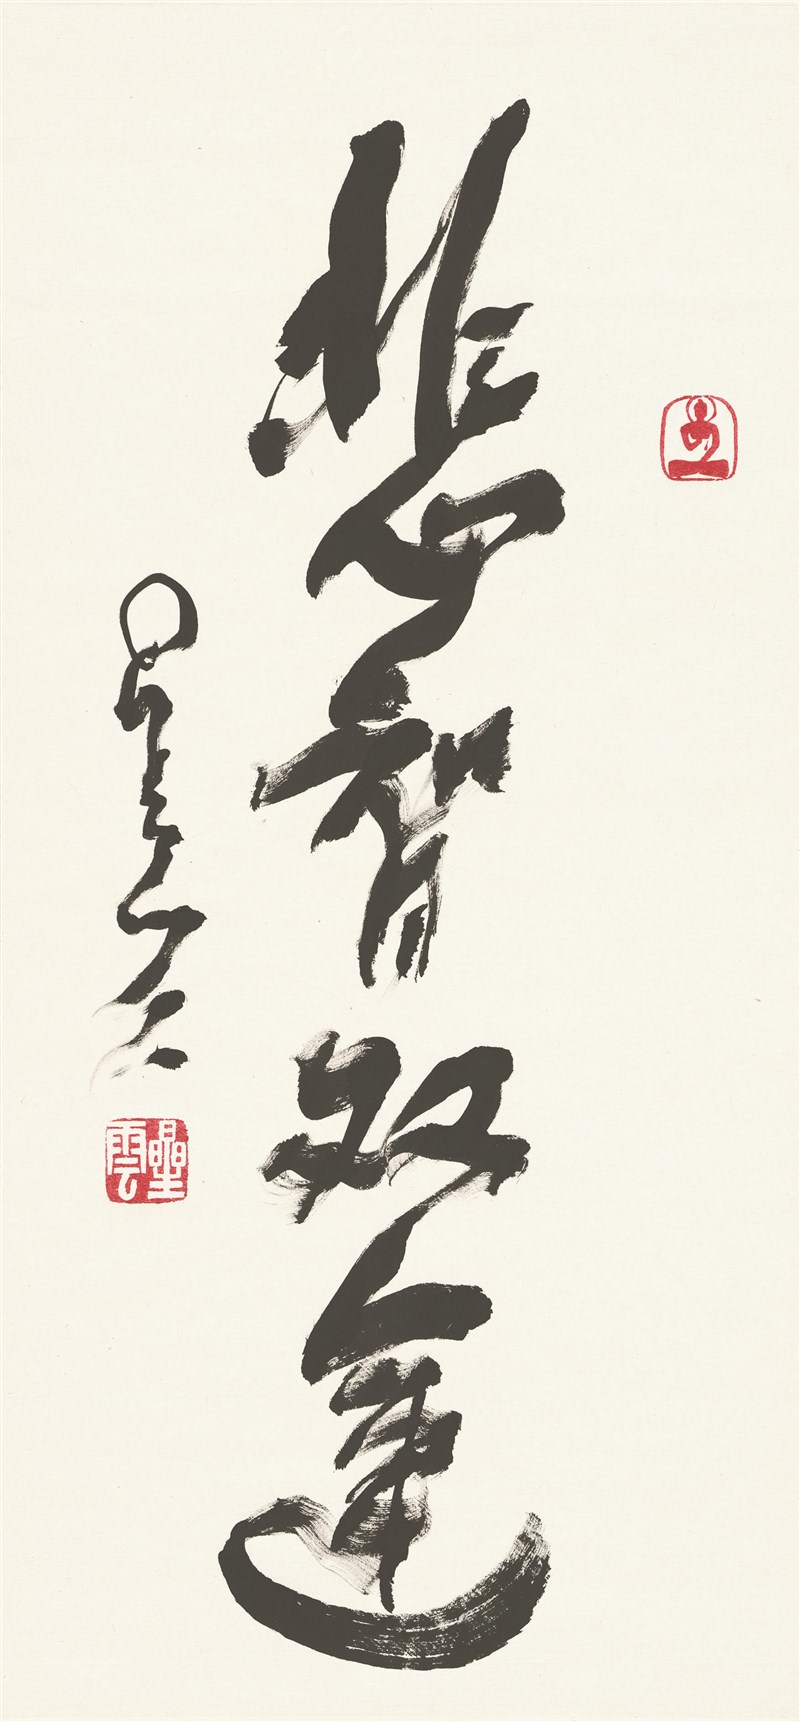 悲智双運
星雲
星雲